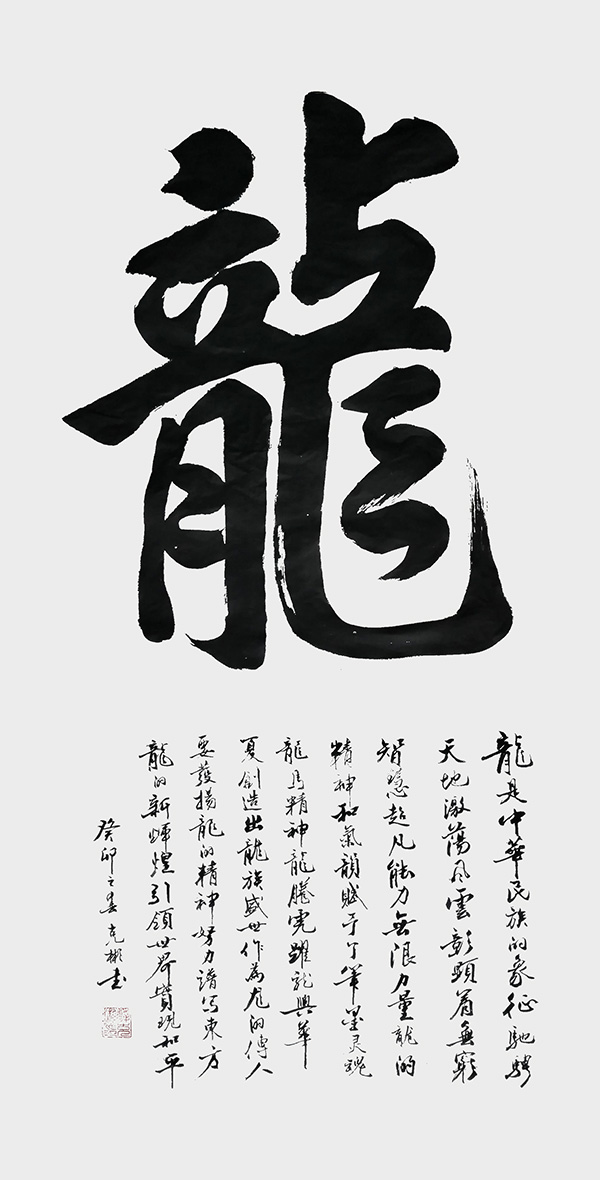 龍
龍是中華民族的象征馳騁
天地激蕩風雲彰顯着無窮
智慧超凡能力無限力量龍的
精神和氣韻賦予了筆墨灵魂
龍马精神龍騰虎躍龍興華
夏創造出龍族盛世作為龙的傳人
要發揚龍的精神努力譜写東方
龍的新輝煌引領世界贊現和平
癸卯之春克彬书